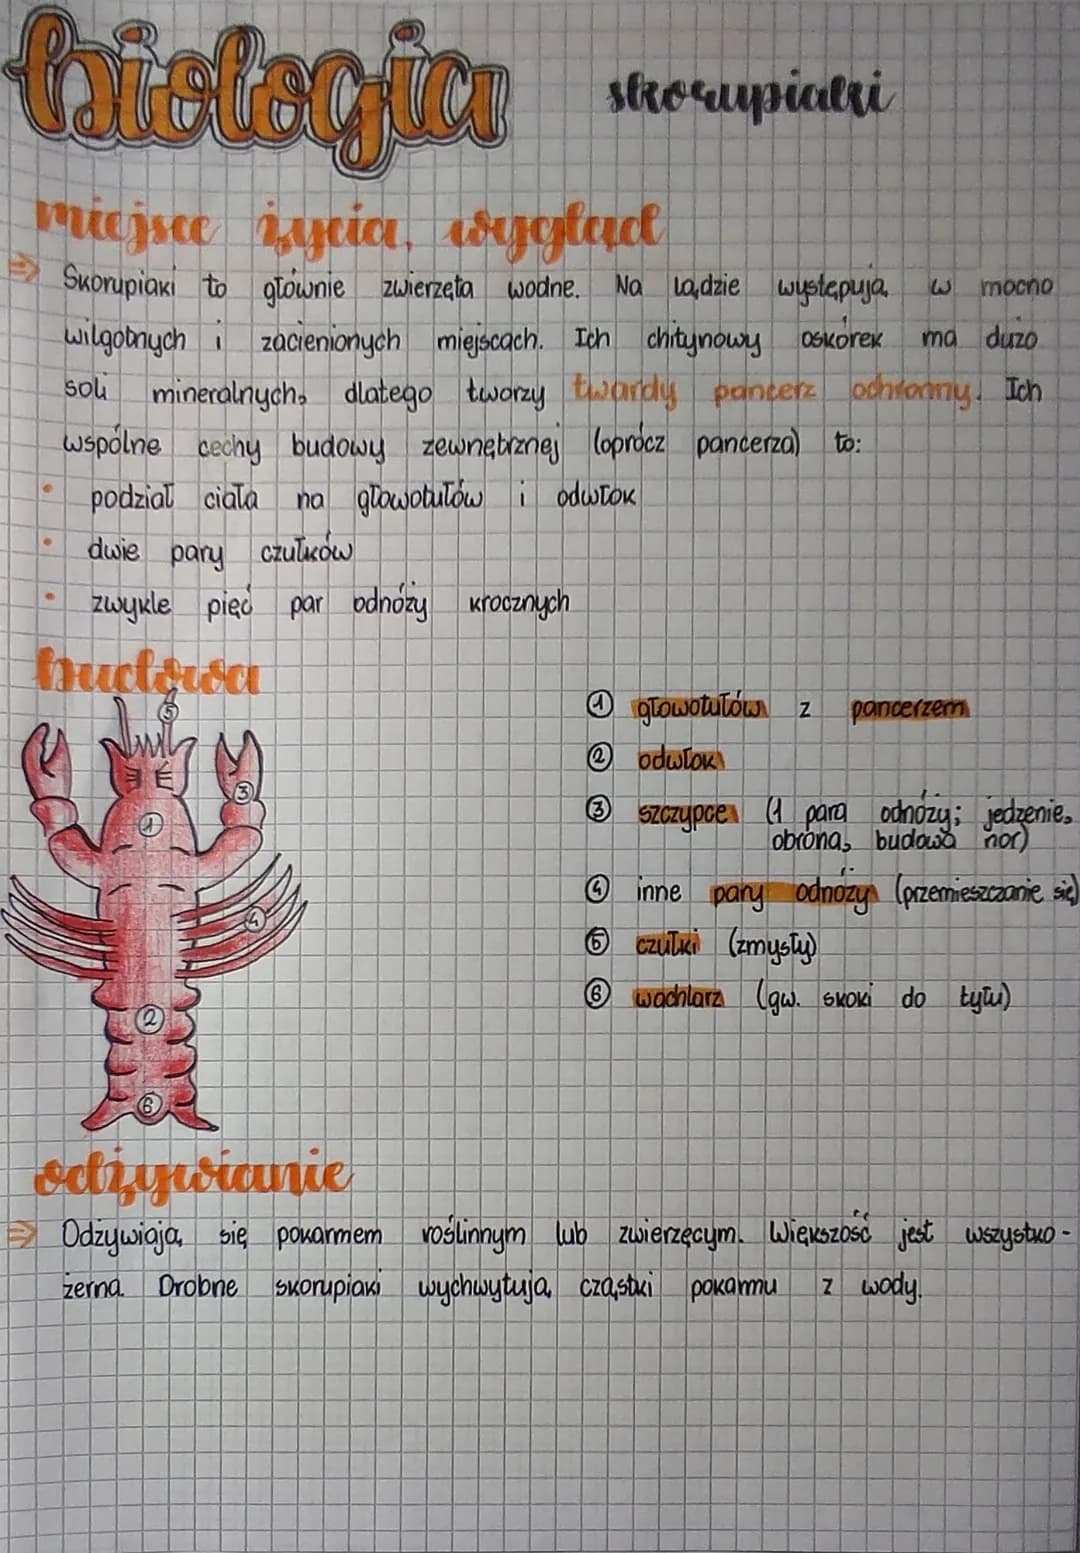 biologia
skorupiaki
miejsce życia, wygląd
⇒ Skorupiaki to głównie zwierzęta wodne. Na lądzie występują w mocno
wilgotnych i zacienionych miejscach. Ich chitynowy oskórek ma dużo
soli mineralnych, dlatego tworzy twardy pancerz ochronny. Ich
wspólne cechy budowy zewnętrznej (oprócz pancerza) to:
• podział ciała na głowotułów i odwłok
• dwie pary czułków
• zwykle pięć par odnóży krocznych
budowa
5
3
1
4
2
6
① głowotułów z pancerzem
② odwłok
③ szczypce (1 para odnóży; jedzenie,
obrona, budowa nor)
④ inne pary odnóży (przemieszczanie się)
⑤ czułki (zmysły)
⑥ wachlarz (gw. skoki do tyłu)
odżywianie
⇒ Odżywiają się pokarmem roślinnym lub zwierzęcym. Większość jest wszystko-
żerna. Drobne skorupiaki wychwytują cząstki pokarmu z wody.